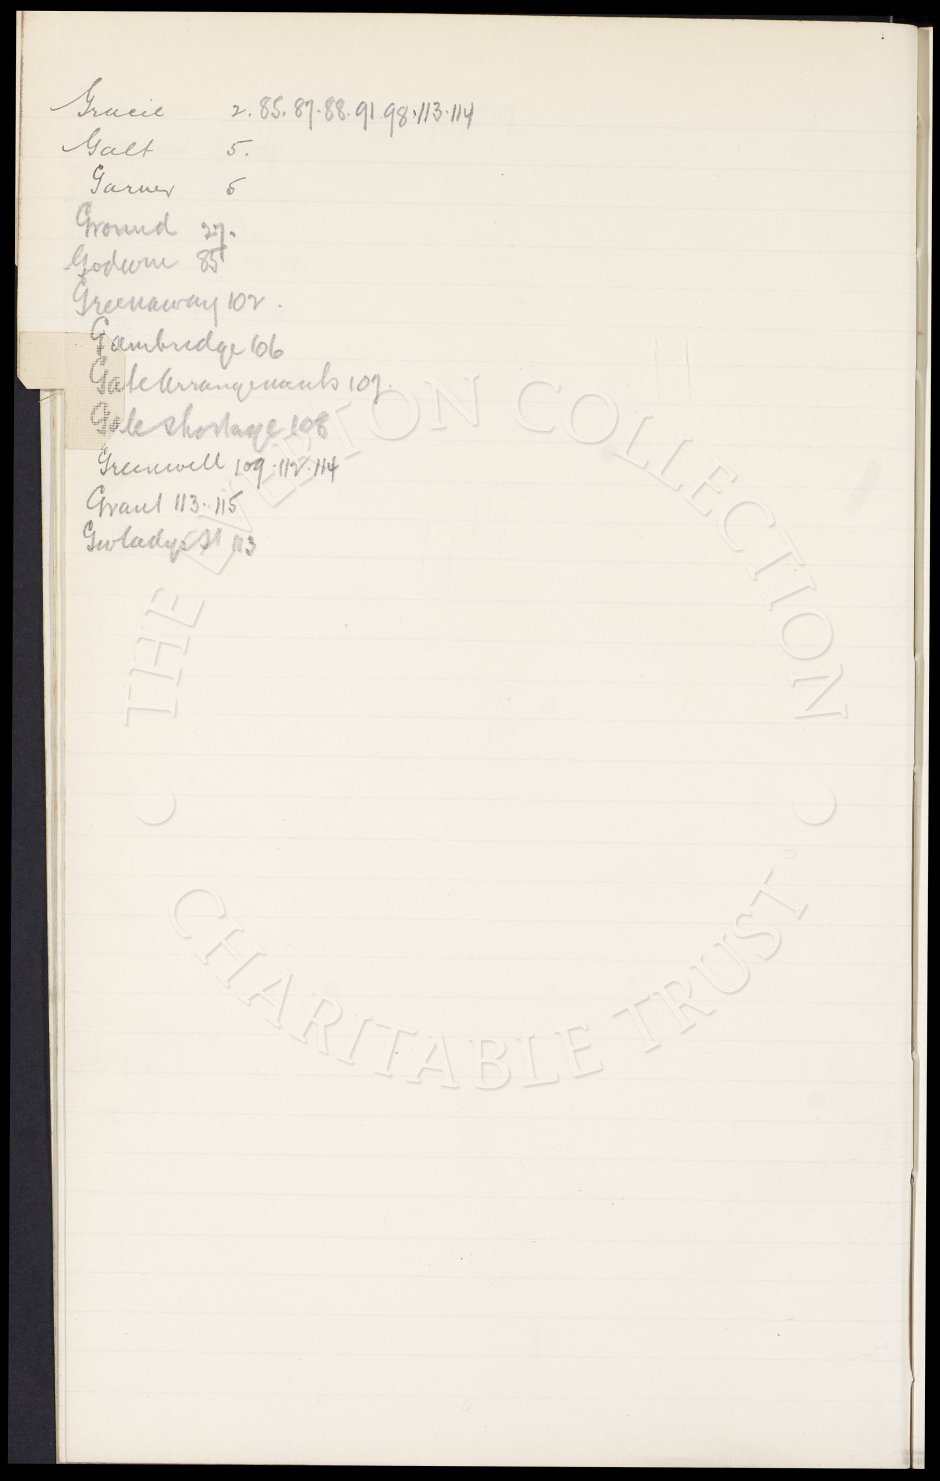 Gracie 2. 85. 87. 88. 91. 98. 113. 114
Galt 5.
Garner 5
Ground 27.
Godwin 85
Greenaway 102.
Gambridge 106
Gate Arrangements 107.
Gate Shortage 108
Greenwell 109. 112. 114
Grant 113. 115
Gwladys St 113
THE EVERTON COLLECTION
CHARITABLE TRUST